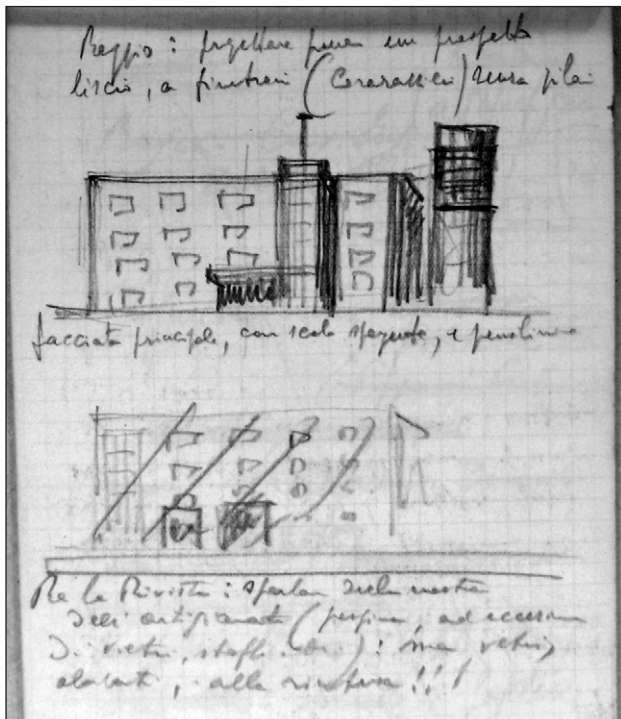 Reggio: progettare pure un prospetto
liscio, a finestroni (Ceramiche) senza
facciata principale, con scala sporgente, e pensilina
Re la Rivista: sparlar della mostra
dell'artigianato (pessima, ad eccezione
di vetri, stoffe ...): ma vetri,
alabastri, alla rinfusa!!!